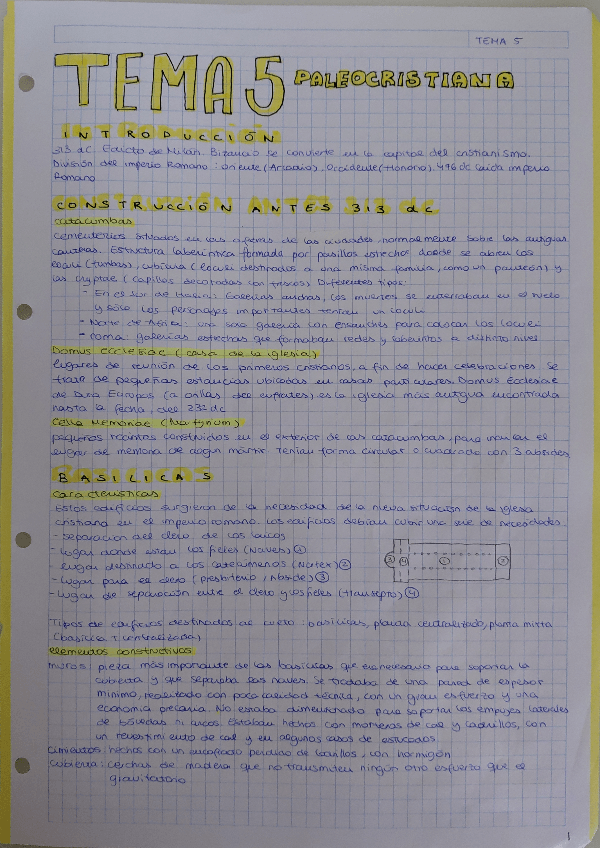 TEMA 5
TEMA 5 PALEOCRISTIANA
INTRODUCCIÓN
313 dC. Edicto de Milán. Bizancio se convierte en la capital del cristianismo.
División del imperio Romano: Oriente (Arcadio), Occidente (Honorio). 476 dC caída imperio
Romano
CONSTRUCCIÓN ANTES 313 dC
catacumbas
cementerios situados en las afueras de las ciudades, normalmente sobre las antiguas
canteras. Estructura laberíntica formada por pasillos estrechos donde se abren los
loculi (tumbas), cubiculas (loculi destinados a una misma familia, como un panteón) y
las cryptae (capillas decoradas con frescos). Diferentes tipos:
- En el sur de Italia: Galerías anchas, los muertos se enterraban en el suelo
y sólo los personajes importantes tenían un loculi
- Norte de África: una sola galería con ensanches para colocar los loculi
- Roma: galerías estrechas que formaban redes y laberintos a distinto nivel
Domus ecclesiae (casa de la iglesia)
lugares de reunión de los primeros cristianos, a fin de hacer celebraciones. Se
trata de pequeñas estancias ubicadas en casas particulares. Domus Ecclesiae
de Dura Europos (a orillas del eufrates) es la iglesia más antigua encontrada
hasta la fecha, del 232 dc
Cella Memoriae (Martyrium)
pequeños recintos construidos en el exterior de las catacumbas, para marcar el
lugar de memoria de algún mártir. Tenían forma circular o cuadrado con 3 ábsides
BASILICAS
características
Estos edificios surgieron de la necesidad de la nueva situación de la iglesia
cristiana en el imperio romano. Los edificios debían cubrir una serie de necesidades.
- separación del clero de los laicos
- lugar donde están los fieles (Naves) ①
- lugar destinado a los catecúmenos (Nartex) ②
- lugar para el clero (presbiterio, ábside) ③
- lugar de separación entre el clero y los fieles (transepto) ④
③ ④ ① ②
Tipos de edificios destinados al culto: basílicas, planta centralizada, planta mixta
(basílica + centralizada)
elementos constructivos
muros: pieza más importante de las basílicas que era necesario para soportar la
cubierta y que separaba las naves. Se trataba de una pared de espesor
mínimo, realizado con poca calidad técnica, con un gran esfuerzo y una
economía precaria. No estaba dimensionado para soportar los empujes laterales
de bóvedas ni arcos. Estaban hechos con morteros de cal y ladrillos, con
un revestimiento de cal y en algunos casos de estucados.
cimientos: hechos con un encofrado perdido de ladrillos, con hormigón
cubierta: cerchas de madera que no transmiten ningún otro esfuerzo que el
gravitatorio
1